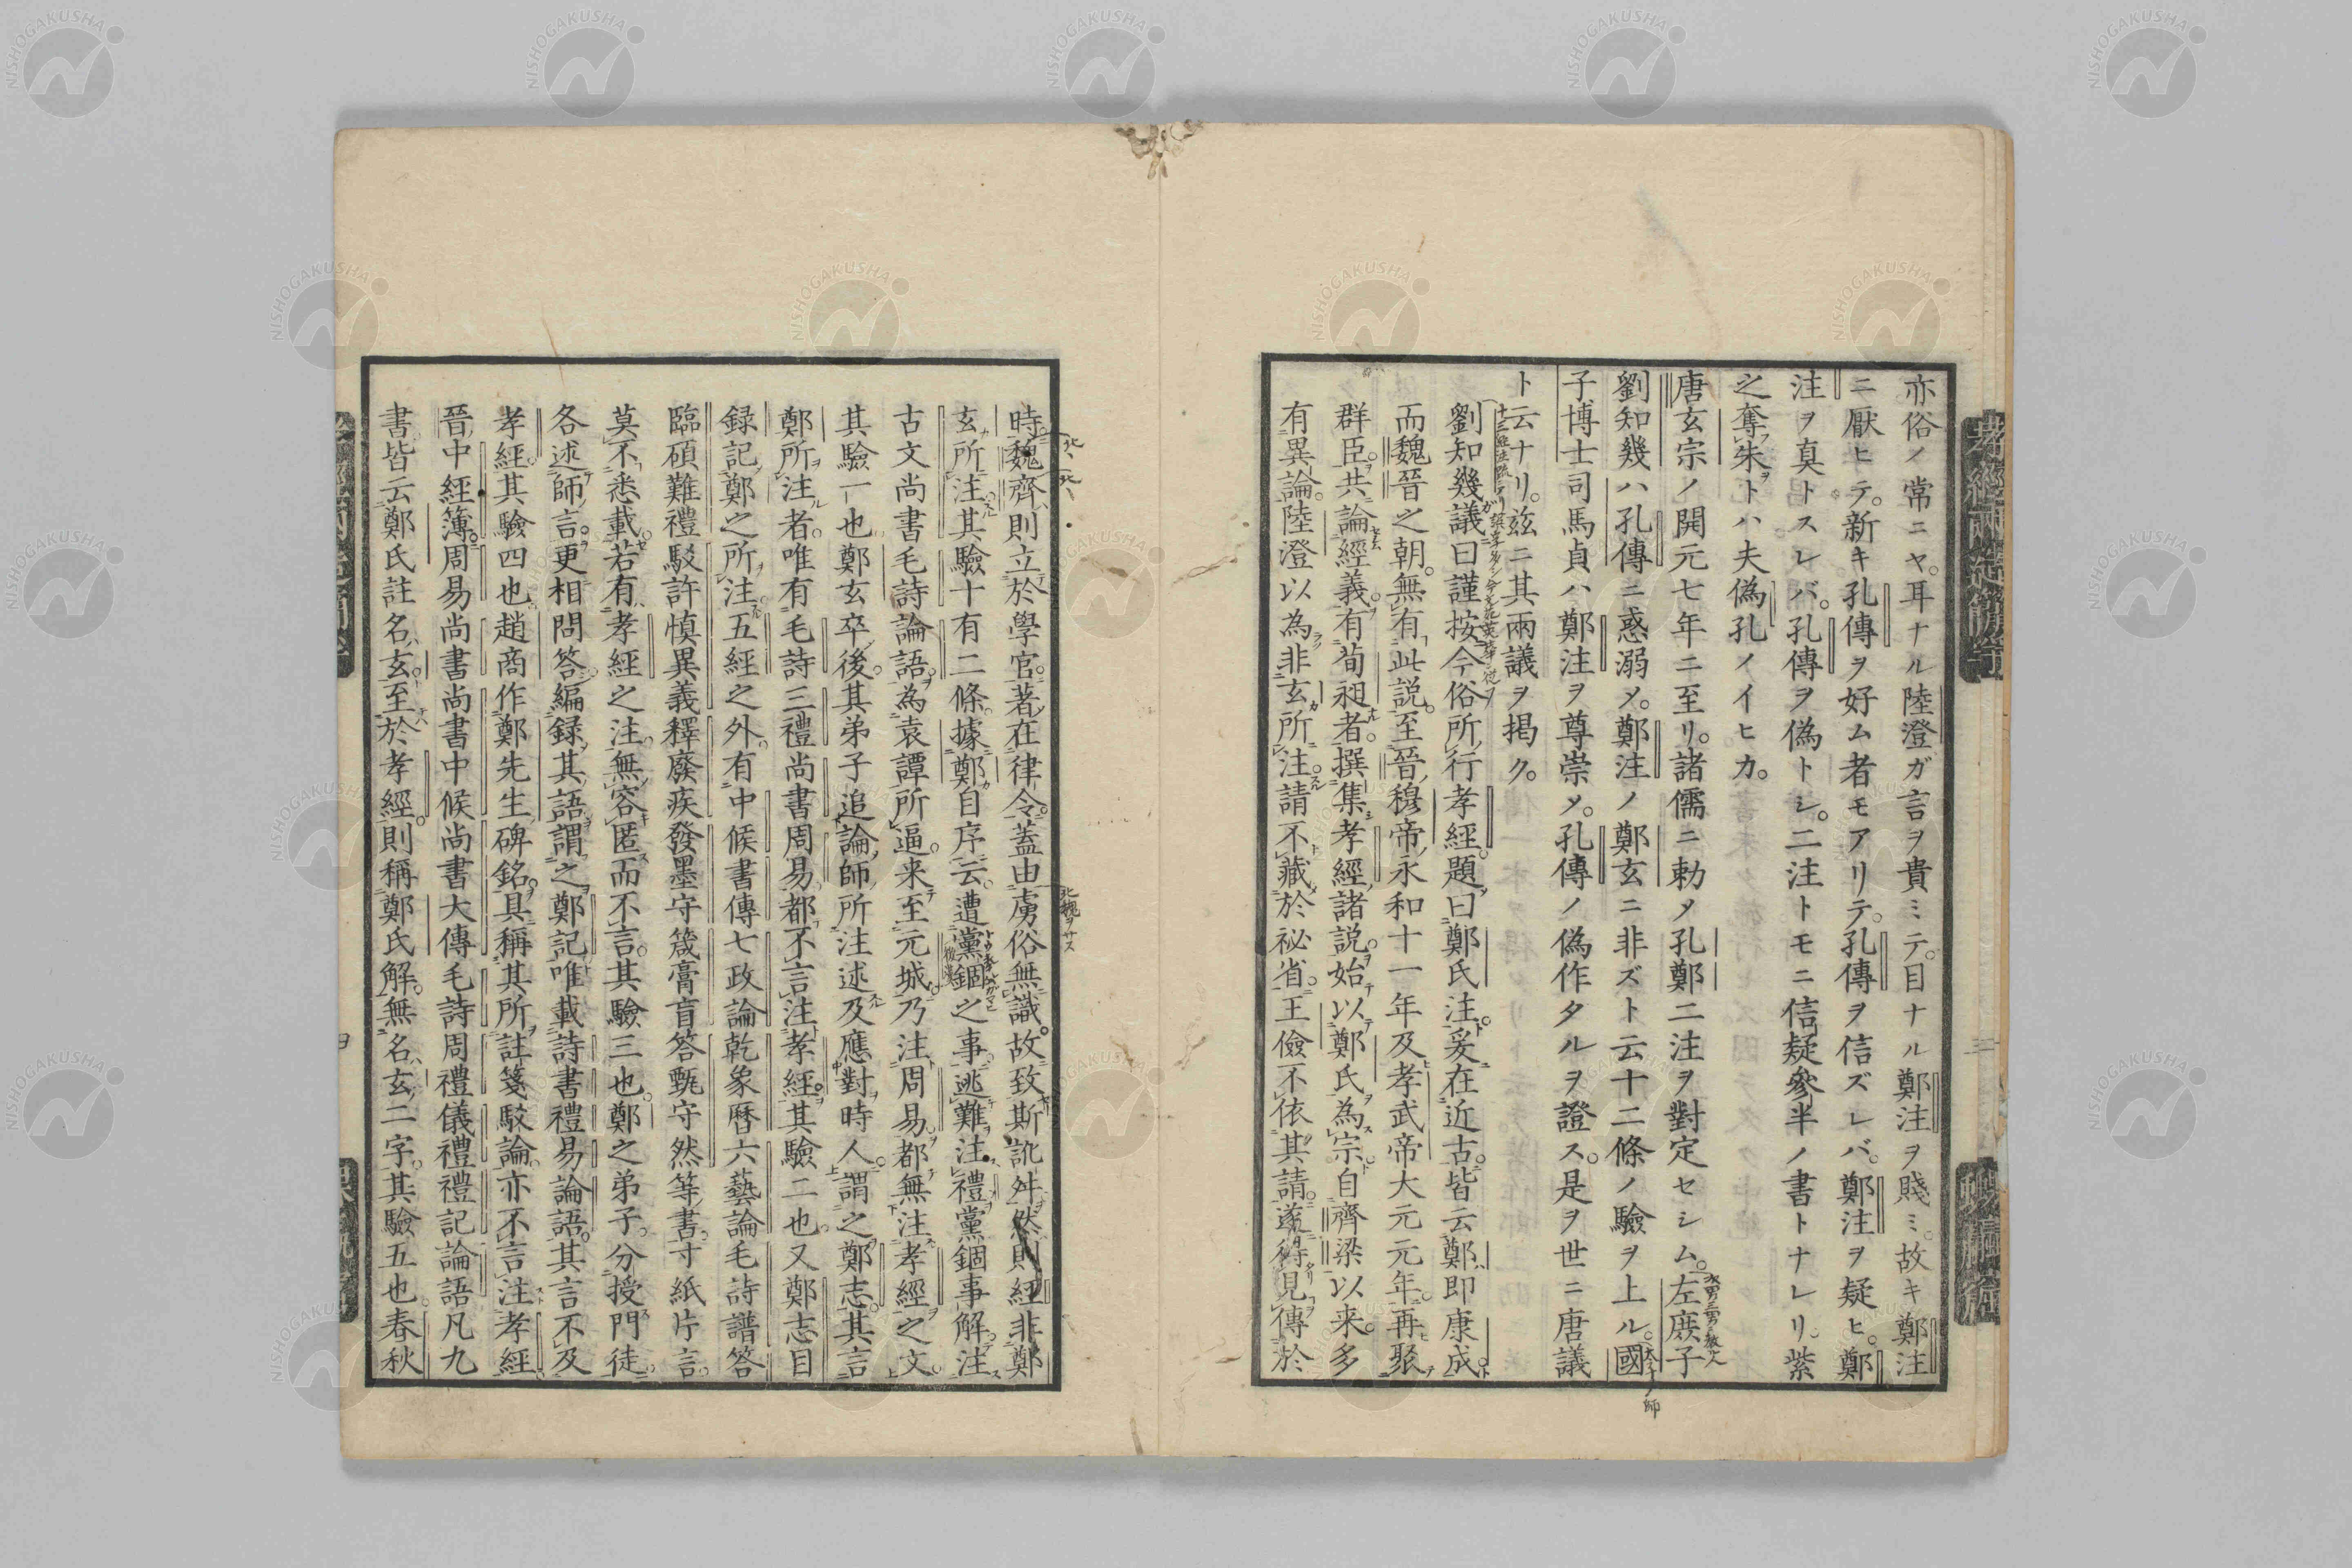 亦俗ノ常ニヤ。耳ナル陸澄ガ言ヲ貴ミテ。目ナル鄭注ヲ賤ミ。故キ鄭注
ニ厭ヒテ。新キ孔傳ヲ好ム者モアリテ。孔傳ヲ信ズレバ。鄭注ヲ疑ヒ。鄭
注ヲ真トスレバ。孔傳ヲ偽トシ。二注トモニ信疑參半ノ書トナレリ紫
之奪朱トハ夫偽孔ノイヒカ。
唐玄宗ノ開元七年ニ至リ。諸儒ニ勅〆孔鄭二注ヲ對定セシム。左庻子
劉知幾ハ孔傳ニ惑溺〆。鄭注ノ鄭玄ニ非ズト云十二條ノ驗ヲ上ル。國
子博士司馬貞ハ鄭注ヲ尊崇〆。孔傳ノ偽作タルヲ證ス。是ヲ世ニ唐議
ト云ナリ。兹ニ其兩議ヲ掲ク。
劉知幾議曰謹按今俗所行孝經。題曰鄭氏注。爰在近古。皆云鄭即康成。
而魏晉之朝。無有此説。至晉穆帝永和十一年及孝武帝大元元年。再聚
群臣。共論經義。有荀昶者。撰集孝經諸説。始以鄭氏為宗。自齊梁以来。多
有異論。陸澄以為非玄所注。請不藏於祕省。王儉不依其請。遂得見傳於
時魏齊則立於學官。著在律令。蓋由虜俗無識。故致斯訛舛。然則經非鄭
玄所注。其驗十有二條。據鄭自序云。遭黨錮之事。逃難注禮黨錮事解。注
古文尚書毛詩論語。為袁譚所逼。来至元城。乃注周易。都無注孝經之文。
其驗一也鄭玄卒後。其弟子追論師所注述及應對時人。謂之鄭志。其言
鄭所注者。唯有毛詩三禮尚書周易。都不言注孝經。其驗二也又鄭志目
録記鄭之所注。五經之外。有中候書傳七政論乾象曆六藝論毛詩譜答
臨碩難禮駁許慎異義釋廢疾發墨守箴膏盲答甄守然等書。寸紙片言。
莫不悉載。若有孝經之注。無容匿而不言。其驗三也。鄭之弟子。分授門徒。
各述師言。更相問答。編録其語。謂之鄭記。唯載詩書禮易論語。其言不及
孝經。其驗四也趙商作鄭先生碑銘。具稱其所註箋駁論。亦不言注孝經
晉中經簿。周易尚書尚書中候尚書大傳毛詩周禮儀禮禮記論語凡九
書皆云鄭氏註名玄。至於孝經。則稱鄭氏解。無名玄二字。其驗五也。春秋
北魏ヲサス